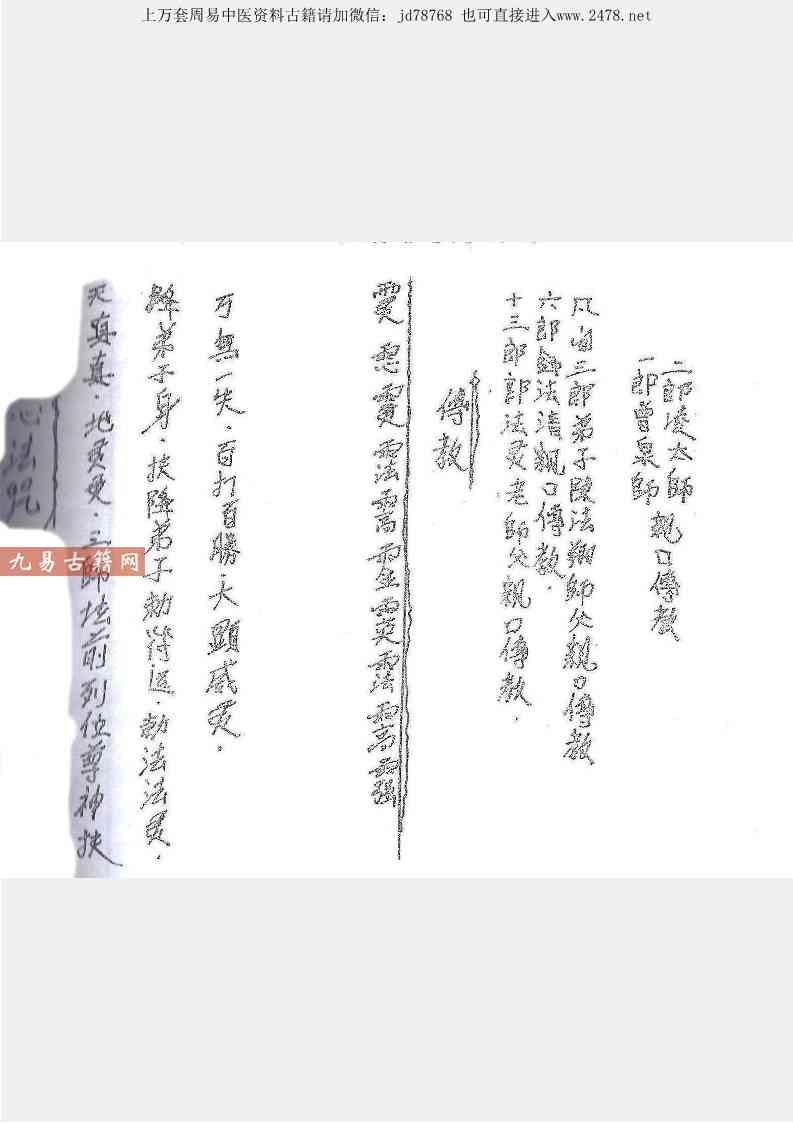 上万套周易中医资料古籍请加微信：jd78768 也可直接进入www.2478.net
二郎凌太師
一郎曹泉師
親口傳教
三郎弟子陳法翔師父親口傳教
六郎 法清親口傳教．
十三郎郭法灵老師父親口傳教．
傳教
万無一失．百打百勝．大顯威灵．
降弟子身．扶降弟子勅符运．勅法法灵．
天真真．地灵灵．三師坛前列位尊神扶
法咒
九易古籍网